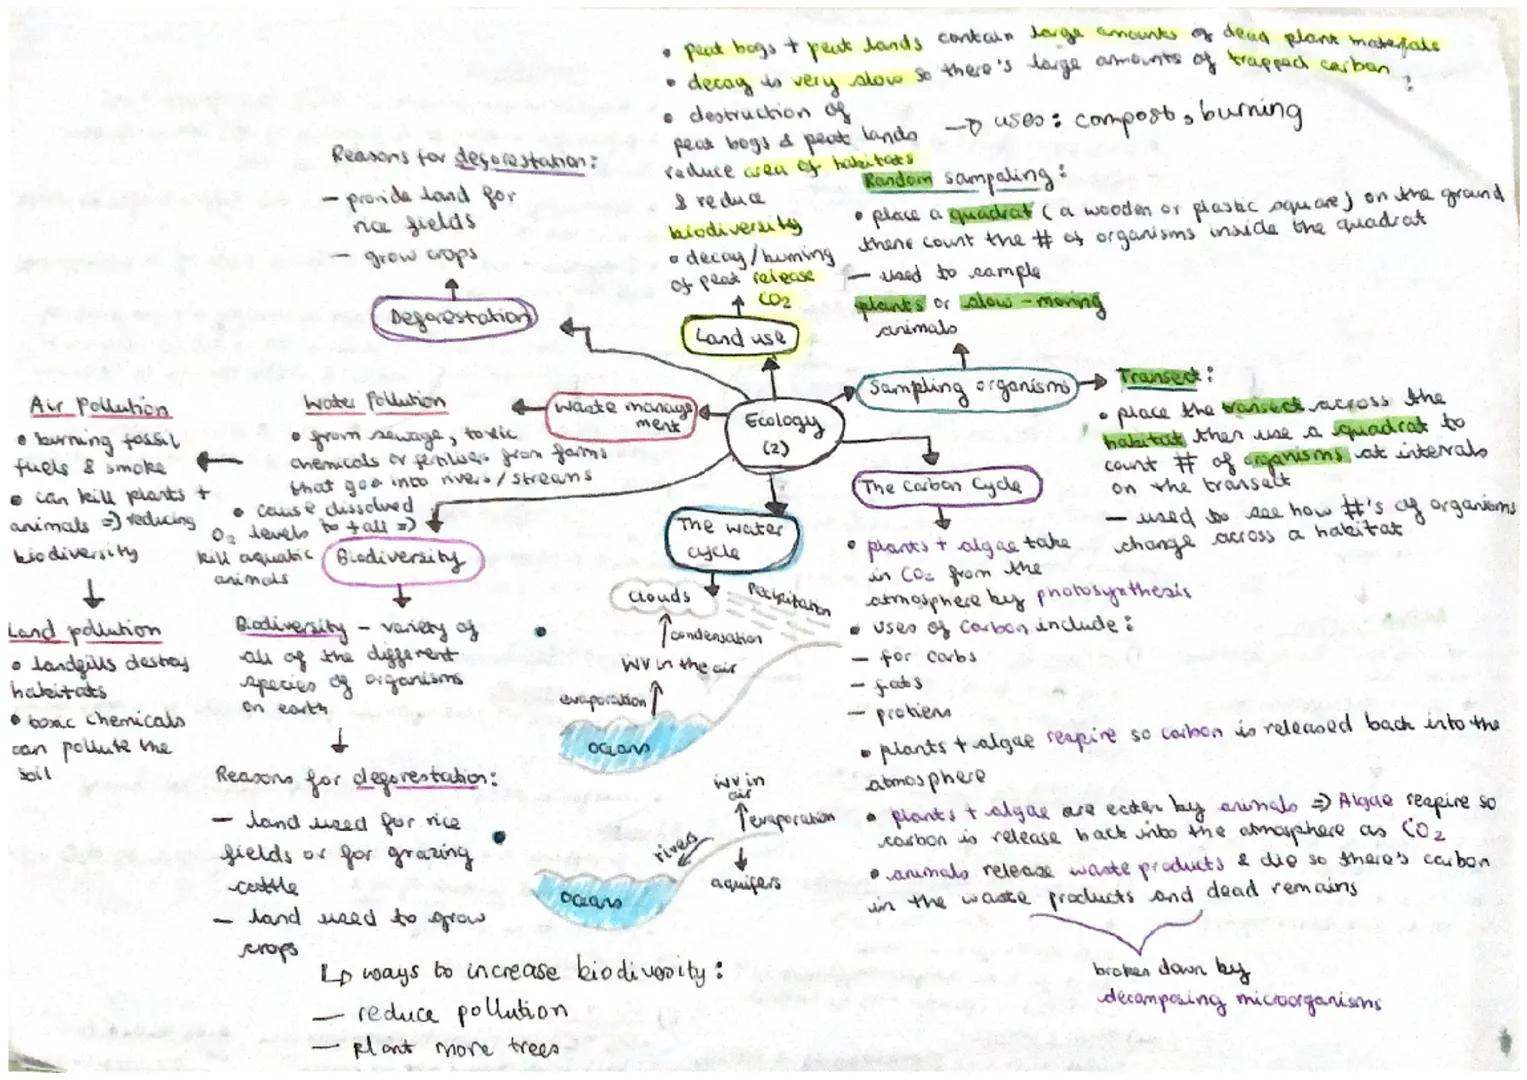 • peat bogs + peat lands contain large amounts of dead plant materials
• decay is very slow so there's large amounts of trapped carbon
• destruction of
peat bogs & peat lands
reduce area of habitats
& reduce
biodiversity
• decay/burning
of peat release
CO2
→ uses: compost, burning
Land use
Reasons for deforestation:
— provide land for
rice fields
— grow crops
Deforestation
Random sampling:
• place a quadrat (a wooden or plastic square) on the ground
then count the # of organisms inside the quadrat
— used to sample
plants or slow-moving
animals
Sampling organisms
Transect:
• place the transect across the
habitat then use a quadrat to
count # of organisms at intervals
on the transect
— used to see how #'s of organisms
change across a habitat
Ecology
(2)
Waste manage
ment
Water Pollution
• from sewage, toxic
chemicals or fertilises from farms
that goe into rivers/streams
• cause dissolved
O2 levels to fall ⇒
kill aquatic
animals
Air Pollution
• burning fossil
fuels & smoke
• can kill plants +
animals ⇒ reducing
biodiversity
Land pollution
• landfills destroy
habitats
• toxic chemicals
can pollute the
soil
Biodiversity
Biodiversity – variety of
all of the different
species of organisms
on earth
Reasons for deforestation:
— land used for rice
fields or for grazing
cattle
— land used to grow
crops
↳ ways to increase biodiversity:
— reduce pollution
— plant more trees
The water
cycle
clouds
Precipitation
condensation
WV in the air
evaporation
oceans
WV in
air
evaporation
rivers
aquifers
oceans
The Carbon Cycle
• plants + algae take
in CO2 from the
atmosphere by photosynthesis
• uses of Carbon include:
— for carbs
— fats
— protiens
• plants + algae respire so carbon is released back into the
atmosphere
• plants + algae are eaten by animals ⇒ Algae respire so
carbon is release back into the atmosphere as CO2
• animals release waste products & die so there's carbon
in the waste products and dead remains
broken down by
decomposing microorganisms